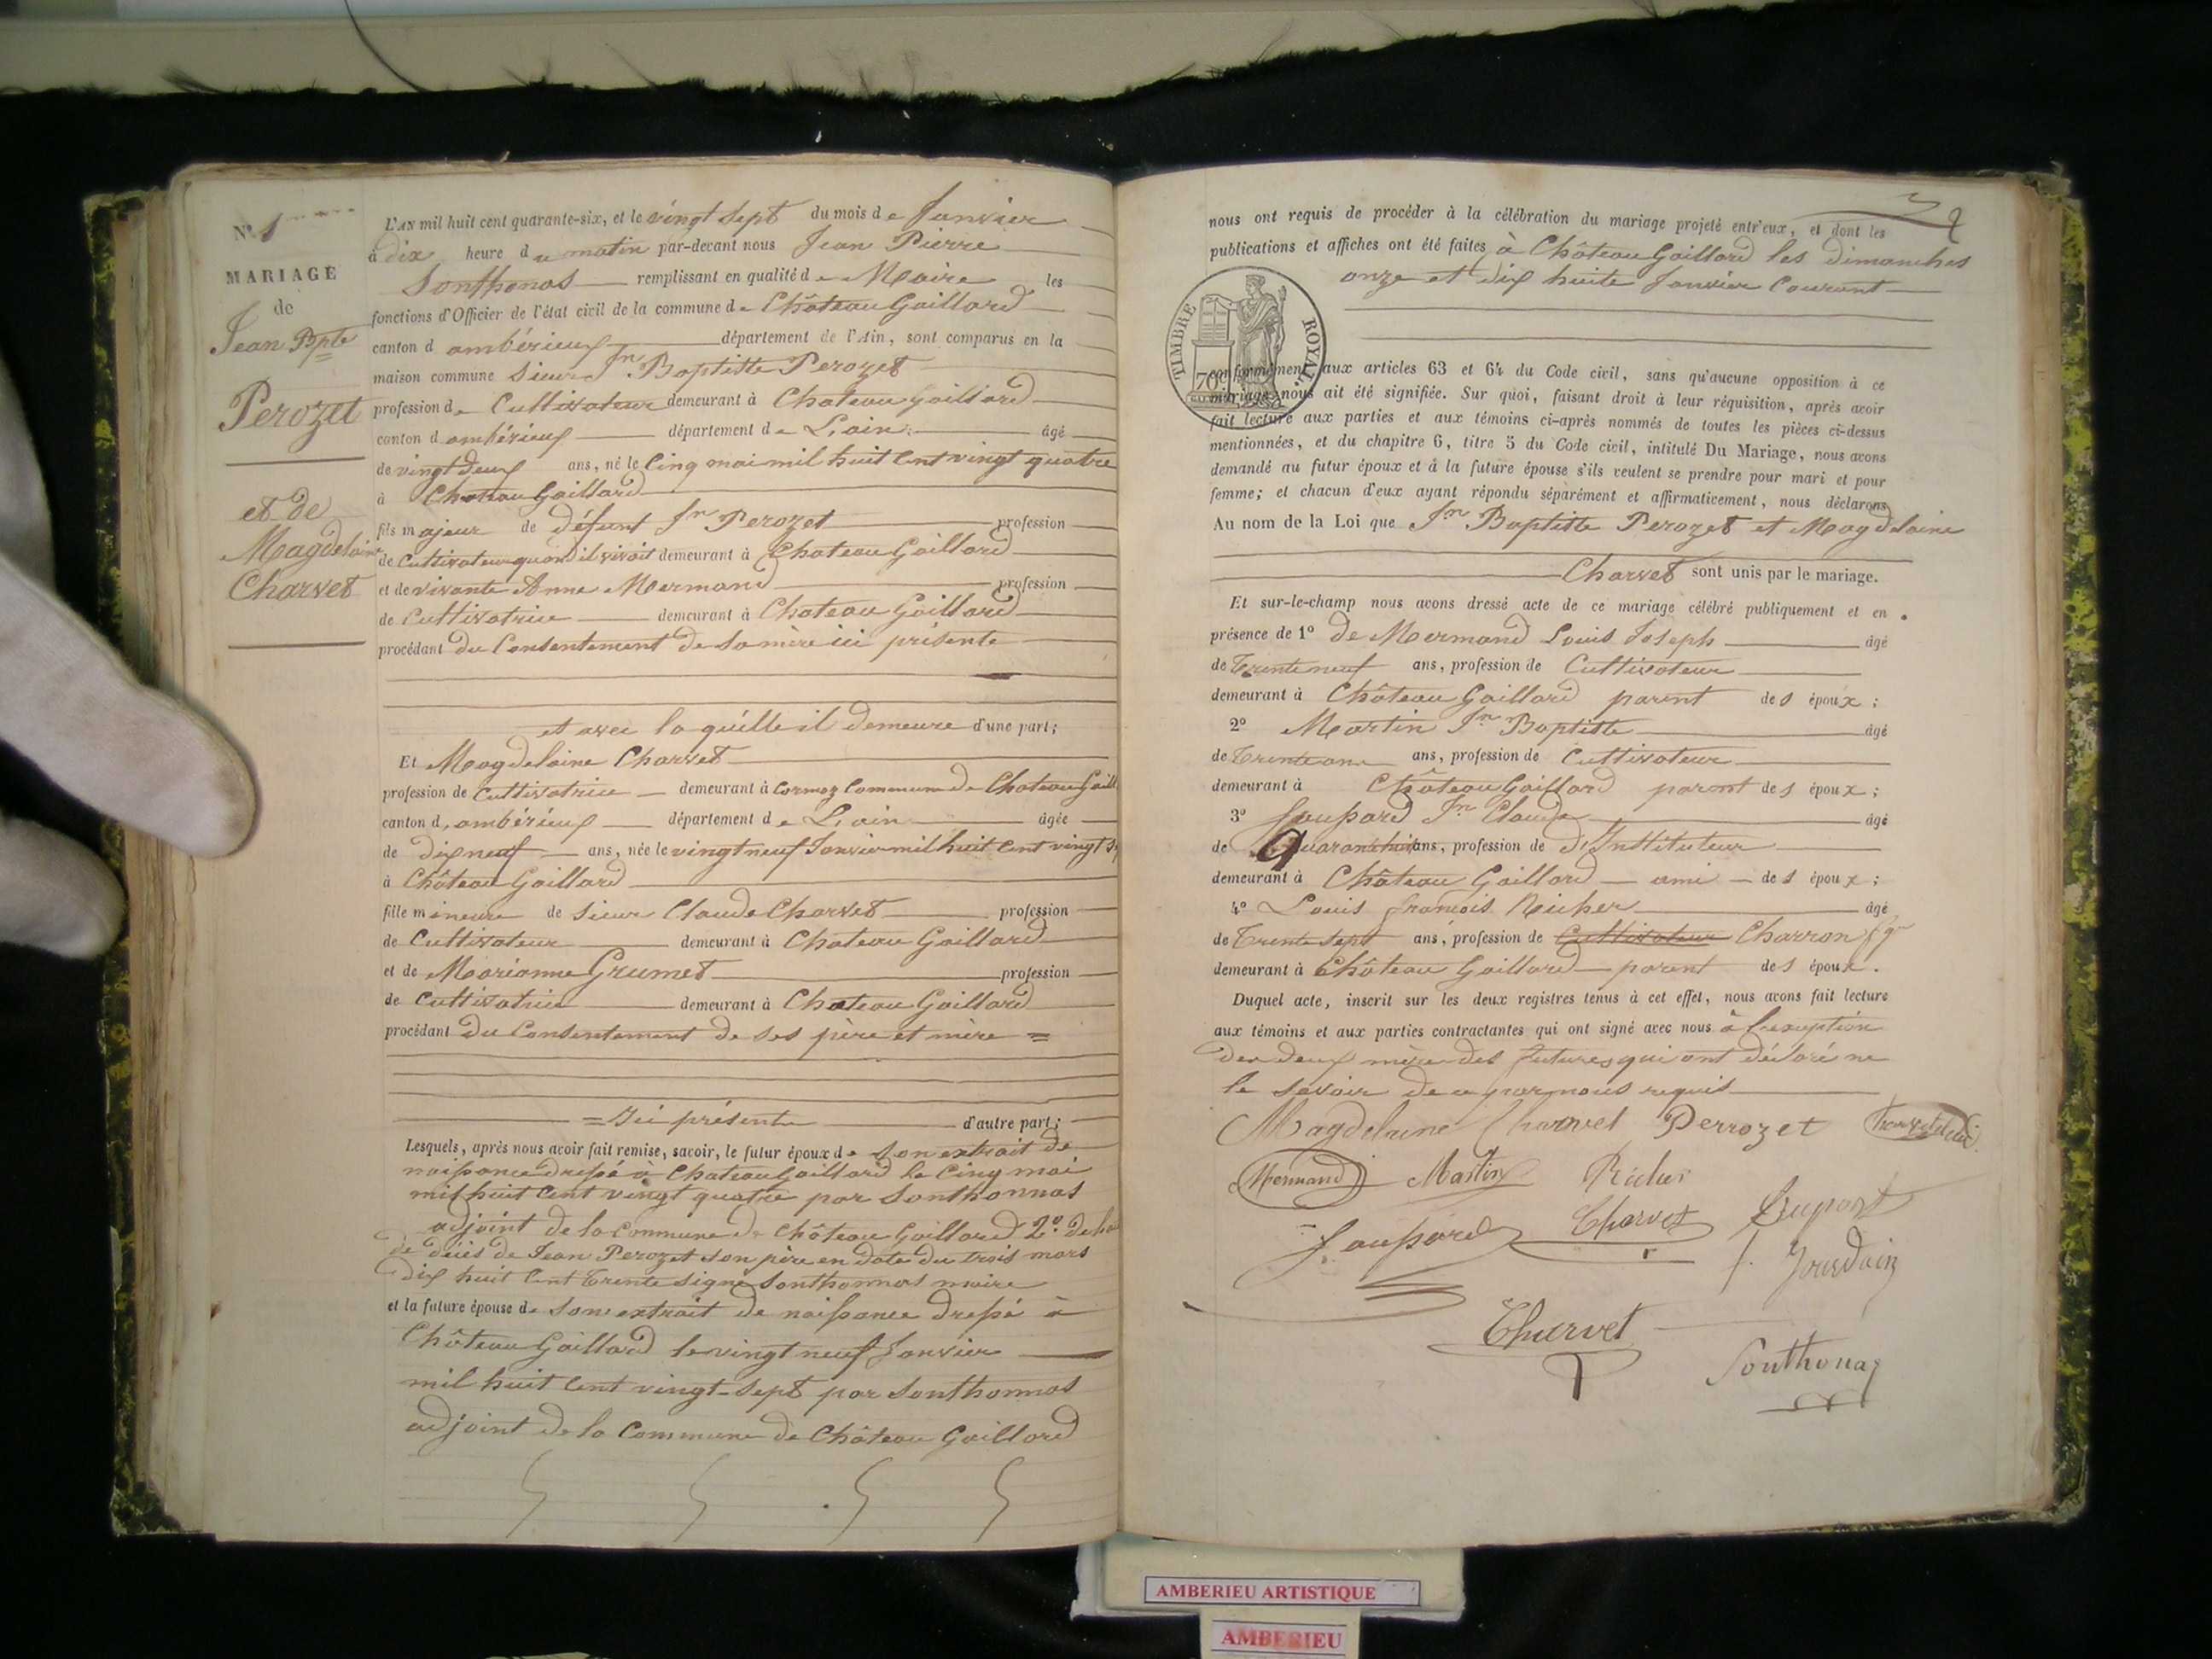 N° 1
MARIAGE
de
Jean Bpte
Perozet
et de
Magdelaine
Charvet
L'AN mil huit cent quarante-six, et le vingt sept du mois de Janvier
à dix heure du matin par-devant nous Jean Pierre
Sonthonas remplissant en qualité de Maire les
fonctions d'Officier de l'état civil de la commune de Château Gaillard
canton d ambérieux département de l'Ain, sont comparus en la
maison commune Sieur Jn Baptiste Perozet
profession de Cultivateur demeurant à Chateau gaillard
canton d ambérieux département de L'ain âgé
de vingt deux ans, né le Cinq mai mil huit Cent vingt quatre
à Chateau Gaillard
fils majeur de défunt Jn Perozet profession
de Cultivateur quand il vivait demeurant à Chateau Gaillard
et de vivante Anne Mermand profession
de Cultivatrice demeurant à Chateau Gaillard
procédant du Consentement de sa mère ici présente
et avec la quélle il demeure d'une part;
Et Magdelaine Charvet
profession de Cultivatrice demeurant à Cormoz Commune de Chateau Gaill
canton d, ambérieux département de L'ain âgée
de dix neuf ans, née le vingt neuf Janvier mil huit Cent vingt s
à Château Gaillard
fille mineure de Sieur Claude Charvet profession
de Cultivateur demeurant à Chateau Gaillard
et de Marianne Grumet profession
de Cultivatrice demeurant à Chateau Gaillard
procédant du Consentement de ses père et mère =
= Ici présents d'autre part;
Lesquels, après nous avoir fait remise, savoir, le futur époux de son extrait de
naissance dressé à Chateau Gaillard le Cinq mai
mil huit Cent vingt quatre par Sonthonnas
adjoint de la Commune de Château Gaillard 2°. de
de décès de Jean Perozet son père en date du trois mars
dix huit Cent Trente signé Sonthonnas maire
et la future épouse de son extrait de naissance dressé à
Château Gaillard le vingt neuf Janvier
mil huit Cent vingt-sept par Sonthonnas
adjoint de la Commune de Château Gaillard
nous ont requis de procéder à la célébration du mariage projeté entr'eux, et dont les
publications et affiches ont été faites à Château Gaillard les dimanches
onze et dix huite Janvier Courant
TIMBRE ROYAL.
70c
conformément aux articles 63 et 64 du Code civil, sans qu'aucune opposition à ce
mariage nous ait été signifiée. Sur quoi, faisant droit à leur réquisition, après avoir
fait lecture aux parties et aux témoins ci-après nommés de toutes les pièces ci-dessus
mentionnées, et du chapitre 6, titre 5 du Code civil, intitulé Du Mariage, nous avons
demandé au futur époux et à la future épouse s'ils veulent se prendre pour mari et pour
femme; et chacun d'eux ayant répondu séparément et affirmativement, nous déclarons
Au nom de la Loi que Jn Baptiste Perozet et Magdelaine
Charvet sont unis par le mariage.
Et sur-le-champ nous avons dressé acte de ce mariage célébré publiquement et en
présence de 1° de Mermand Louis Joseph âgé
de Trente neuf ans, profession de Cultivateur
demeurant à Château Gaillard parent des époux;
2° Martin Jn Baptiste âgé
de Trente ans, profession de Cultivateur
demeurant à Château Gaillard parent des époux;
3° Jn Claude âgé
de ans, profession de d'Instituteur
demeurant à Château Gaillard ami des époux;
4° Louis françois âgé
de Trente sept ans, profession de Cultivateur Charron
demeurant à Château Gaillard parent des époux.
Duquel acte, inscrit sur les deux registres tenus à cet effet, nous avons fait lecture
aux témoins et aux parties contractantes qui ont signé avec nous à l'exception
des deux mère des futures qui ont déclaré ne
le savoir de ce par nous requis
Magdelaine Charvet Perrozet
Mermand Martin
Charvet Dupont
f. Jourdain
Charvet
Sonthonas
AMBERIEU ARTISTIQUE
AMBERIEU